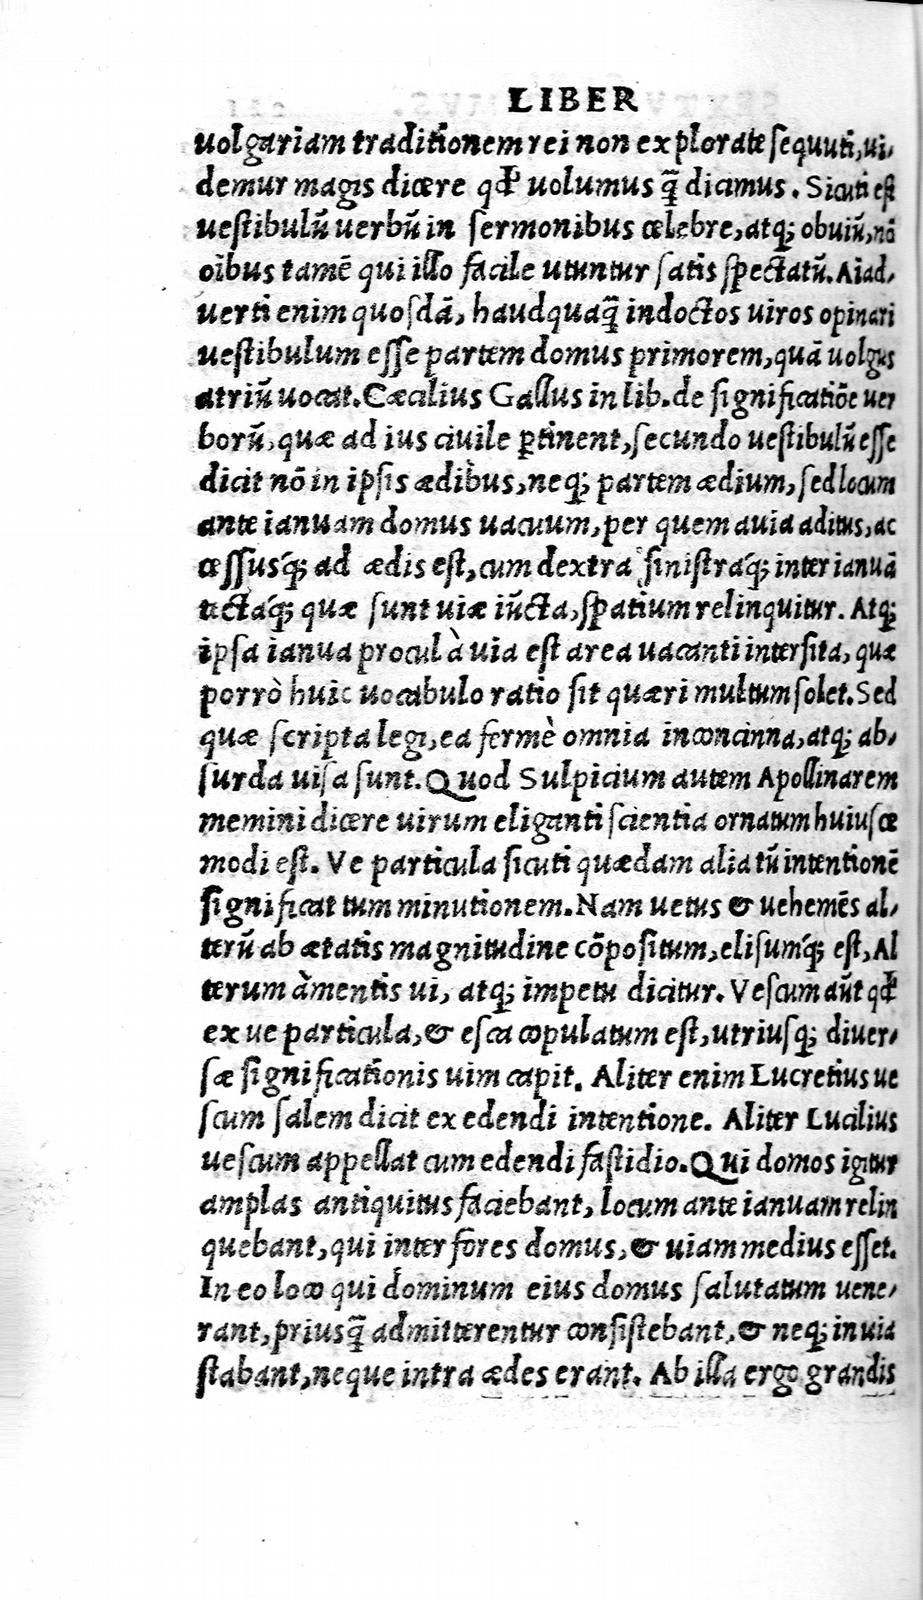 LIBER
uolgariam traditionem rei non explorate sequuti, ui-
demur magis dicere qđ uolumus q̃ dicimus. Sicuti est
uestibulũ uerbũ in sermonibus celebre, atq; obuiũ, nõ
oĩbus tamẽ qui illo facile utuntur satis spectatũ. Aiad-
uerti enim quosdã, haudquaq̃ indoctos uiros opinari
uestibulum esse partem domus primorem, quã uolgus
atriũ uocat. Cæcilius Gallus in lib. de significatiõe uer
borũ, quæ ad ius ciuile ꝑtinent, secundo uestibulũ esse
dicit nõ in ipsis ædibus, neq; partem ædium, sed locum
ante ianuam domus uacuum, per quem auia aditus, ac
cessusq́; ad ædis est, cum dextra sinistraq́; inter ianuã
tectaq́; quæ sunt uiæ iũcta, spatium relinquitur. Atq;
ipsa ianua procul à uia est area uacanti intersita, quæ
porrò huic uocabulo ratio sit quæri multum solet. Sed
quæ scripta legi, ea fermè omnia inconcinna, atq; ab-
surda uisa sunt. Quod Sulpicium autem Apollinarem
memini dicere uirum eliganti scientia ornatum huiusce
modi est. Ve particula sicuti quædam alia tũ intentionẽ
significat tum minutionem. Nam uetus & uehemẽs al-
terũ ab ætatis magnitudine cõpositum, elisumq́; est, Al
terum àmentis ui, atq; impetu dicitur. Vescum aũt qđ
ex ue particula, & esca copulatum est, utriusq; diuer-
sæ significationis uim capit. Aliter enim Lucretius ue
scum salem dicit ex edendi intentione. Aliter Lucilius
uescum appellat cum edendi fastidio. Qui domos igitur
amplas antiquitus faciebant, locum ante ianuam relin
quebant, qui inter fores domus, & uiam medius esset.
In eo loco qui dominum eius domus salutatum uene-
rant, priusq̃ admitterentur consistebant, & neq; in uia
stabant, neque intra ædes erant. Ab illa ergo grandis